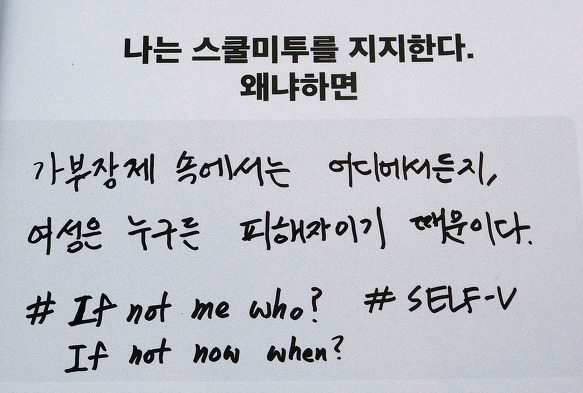 나는 스쿨미투를 지지한다.
왜냐하면
가부장제 속에서는 어디에서든지,
여성은 누구든 피해자이기 때문이다.
# If not me who? # SELF-V
If not now when?